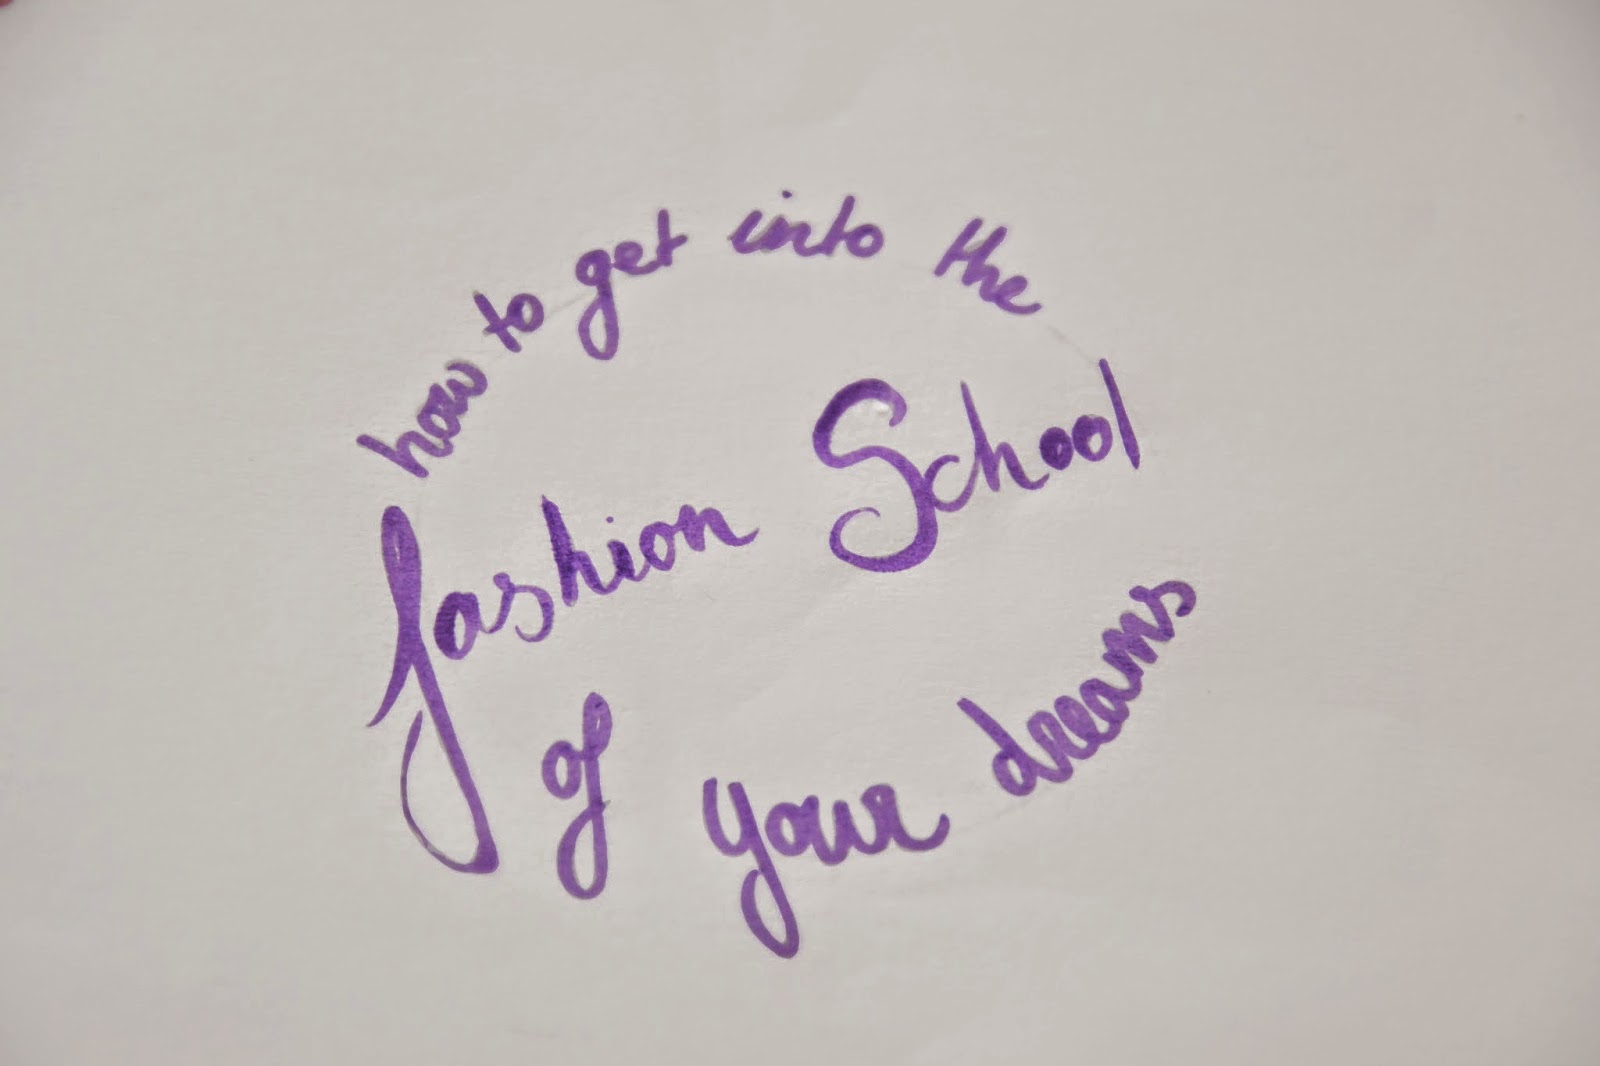 how to get into the
fashion School
of your dreams